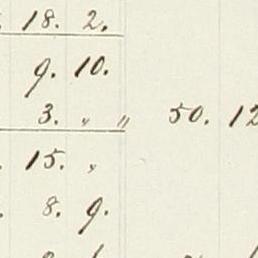 18. 2.
9. 10.
3. „ „ 50. 12
15. „
8. 9.